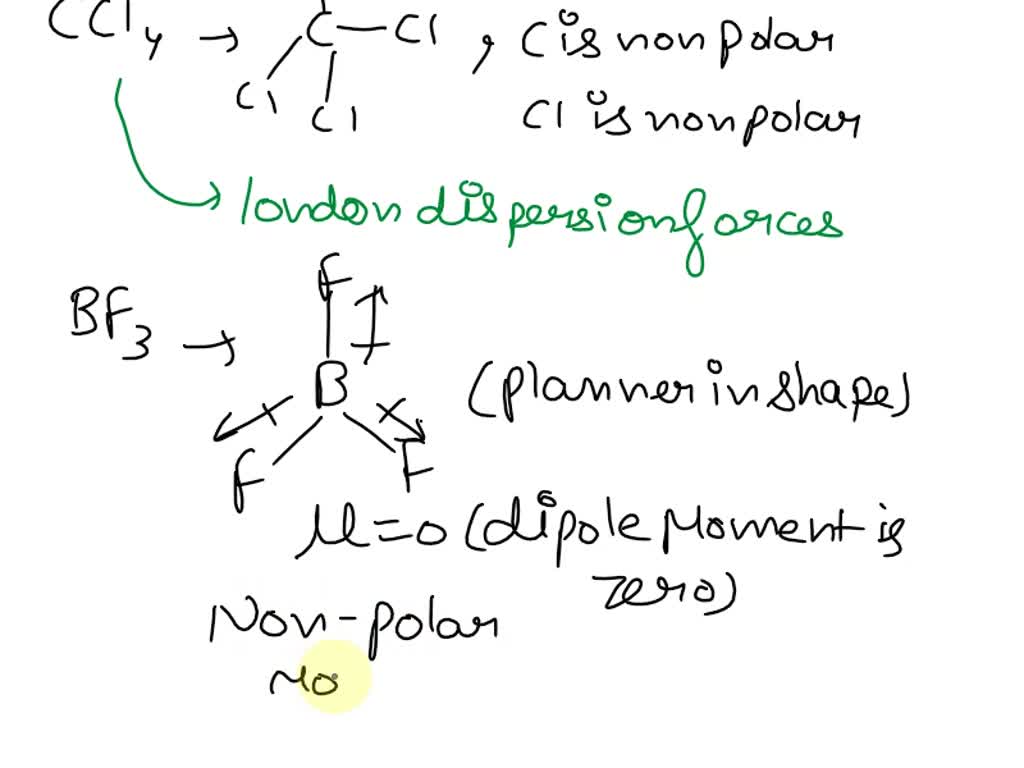 CCl4 → C—Cl , C is non polar
Cl Cl Cl is non polar
london dispersion forces
F
BF3 →
B (planner in shape)
F F
μ=0 (dipole Moment is
zero)
Non-polar
Mo